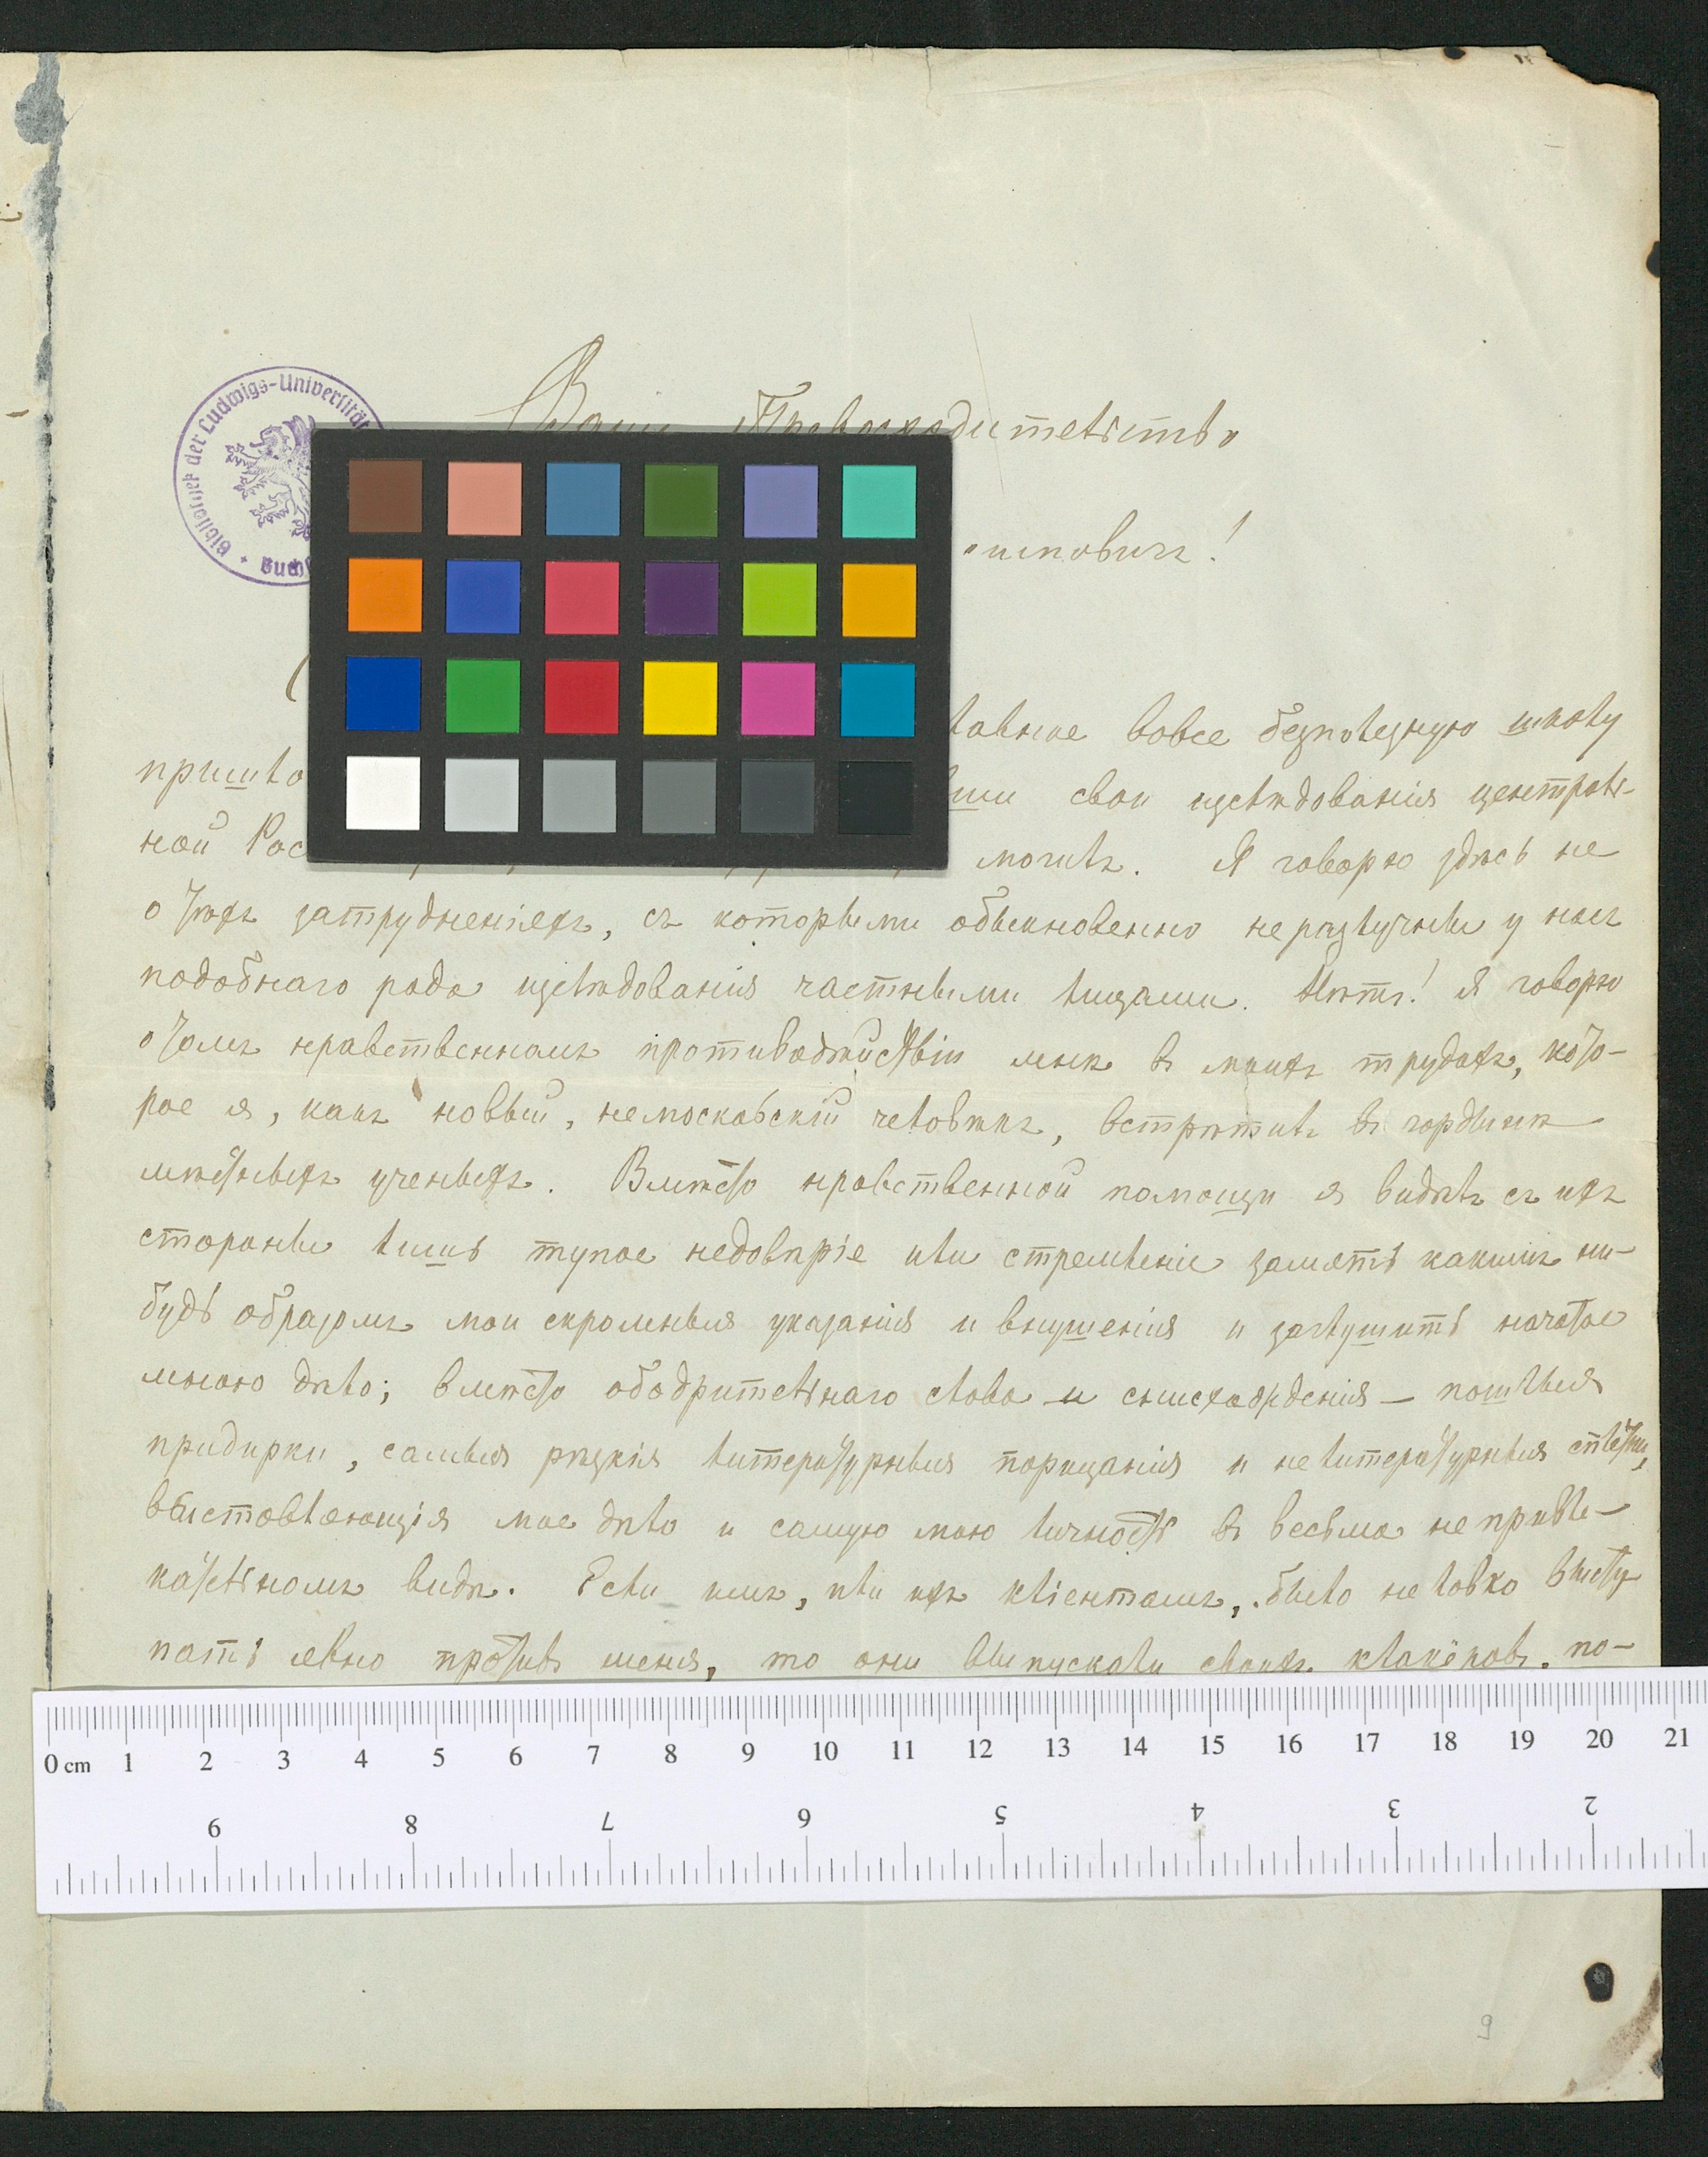 Bibliothek der Ludwigs-Universität
Ваше Превосходительство
повичъ!
главное вовсе безполезную школу
пришло
свои изслѣдованія централь-
ной Рос
могилъ. Я говорю здѣсь не
о тѣхъ затрудненіехъ, съ которыми обыкновенно неразлучны у насъ
подобнаго рода изслѣдованія частными лицами. Нѣтъ! Я говорю
о томъ нравственномъ противодѣйствіи мнѣ въ моихъ трудахъ, кото-
рое я, какъ новый, немосковскій человѣкъ, встрѣтилъ въ гордынѣ
мѣстныхъ ученыхъ. Вмѣсто нравственной помощи я видѣлъ съ ихъ
стороны лишь тупое недовѣріе или стремленіе замять какимъ ни-
будь образомъ мои скромныя указанія и внушенія и заглушить начатое
мною дѣло; вмѣсто ободрительнаго слова и снисхожденія — пошлыя
придирки, самыя рѣзкія литературныя порицанія и нелитературныя сплетни,
выставляющія мое дѣло и самую мою личность въ весьма непривле-
кательномъ видѣ. Если имъ, или ихъ кліентамъ, было неловко высту
пать явно противъ меня, то они выпускали своихъ клакёровъ, по-
0 cm 1 2 3 4 5 6 7 8 9 10 11 12 13 14 15 16 17 18 19 20 21
9 8 7 6 5 4 3 2